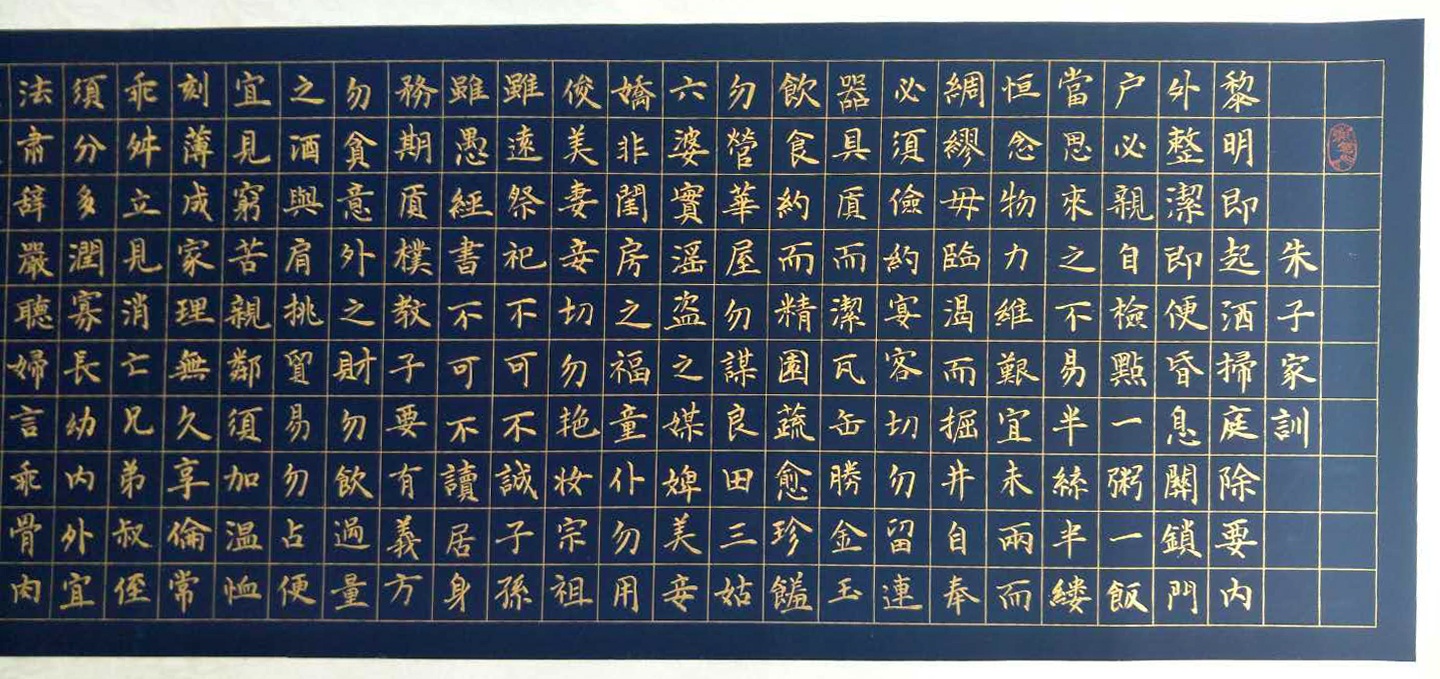 朱子家訓
黎明即起洒掃庭除要内
外整潔即便昏息關鎖門
户必親自檢點一粥一飯
當思來之不易半絲半縷
恒念物力維艱宜未雨而
綢繆毋臨渴而掘井自奉
必須儉約宴客切勿留連
器具質而潔瓦缶勝金玉
飲食約而精園蔬愈珍饈
勿營華屋勿謀良田三姑
六婆實淫盗之媒婢美妾
嬌非閨房之福童仆勿用
俊美妻妾切勿艳妆宗祖
雖遠祭祀不可不誠子孫
雖愚經書不可不讀居身
務期質樸教子要有義方
勿貪意外之財勿飲過量
之酒與肩挑貿易勿占便
宜見窮苦親鄰須加温恤
刻薄成家理無久享倫常
乖舛立見消亡兄弟叔侄
須分多潤寡長幼内外宜
法肃辭嚴聽婦言乖骨肉